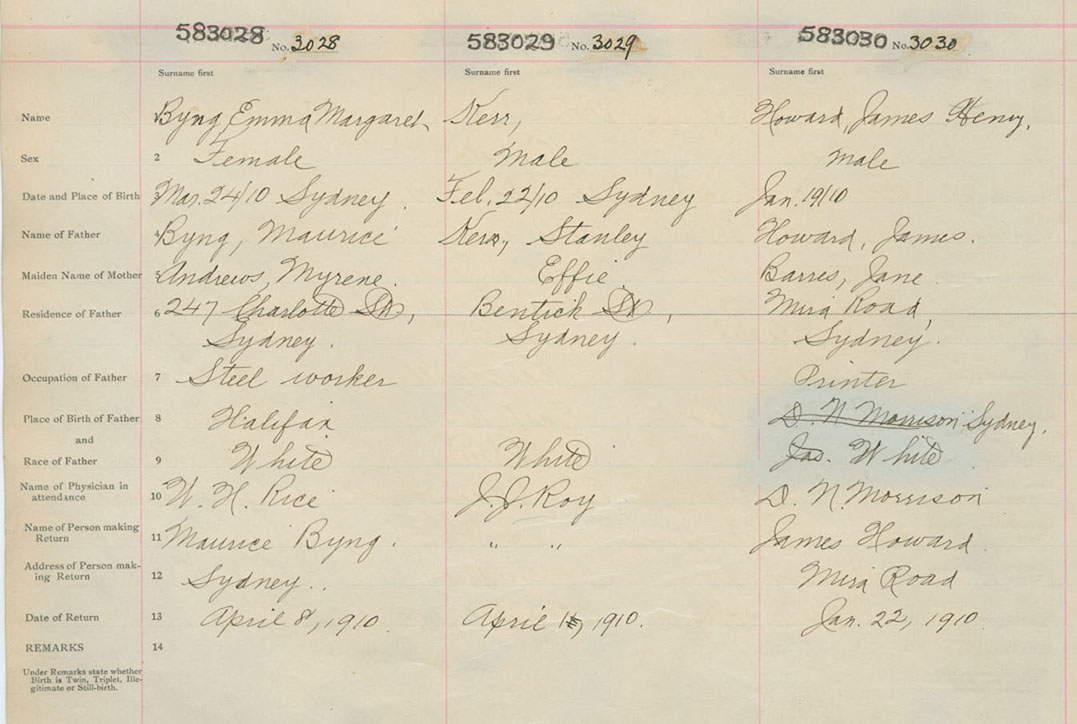 583028 No. 3028 583029 No. 3029 583030 No. 3030
Surname first Surname first Surname first
Name Byng Emma Margaret Kerr, Howard, James Henry,
Sex 2 Female Male Male
Date and Place of Birth 3 Mar. 24/10 Sydney. Feb. 22/10 Sydney Jan. 19/10
Name of Father 4 Byng, Maurice Kerr, Stanley Howard, James.
Maiden Name of Mother 5 Andrews, Myrene. Effie Barres, Jane
Residence of Father 6 247 Charlotte St, Bentick St, Mira Road,
Sydney. Sydney. Sydney.
Occupation of Father 7 Steel worker Printer
Place of Birth of Father 8 Halifax D. N Morrison Sydney,
and
Race of Father 9 White White Jas. White
Name of Physician in
attendance 10 W. H. Rice J. J. Roy D. N. Morrison
Name of Person making
Return 11 Maurice Byng. " " James Howard
Address of Person mak-
ing Return 12 Sydney.. Mira Road
Date of Return 13 April 8, 1910. April 1910. Jan. 22, 1910
REMARKS 14
Under Remarks state whether
Birth is Twin, Triplet, Ille-
gitimate or Still-birth.